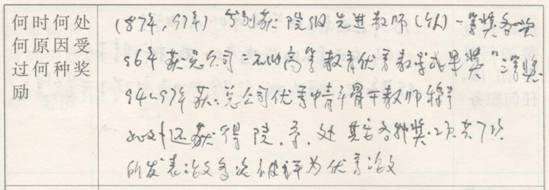 何时何处
何原因受
过何种奖
励
(87年,97年) 分别获院级先进教师(个人)一等奖各一
96年获总公司二元化高等教育优秀教学成果奖"二等奖
94-97年获总公司优秀中青年骨干教师称号
此外还获得院、系、处其它各种奖二次共7次
所发表论文多次被评为优秀论文